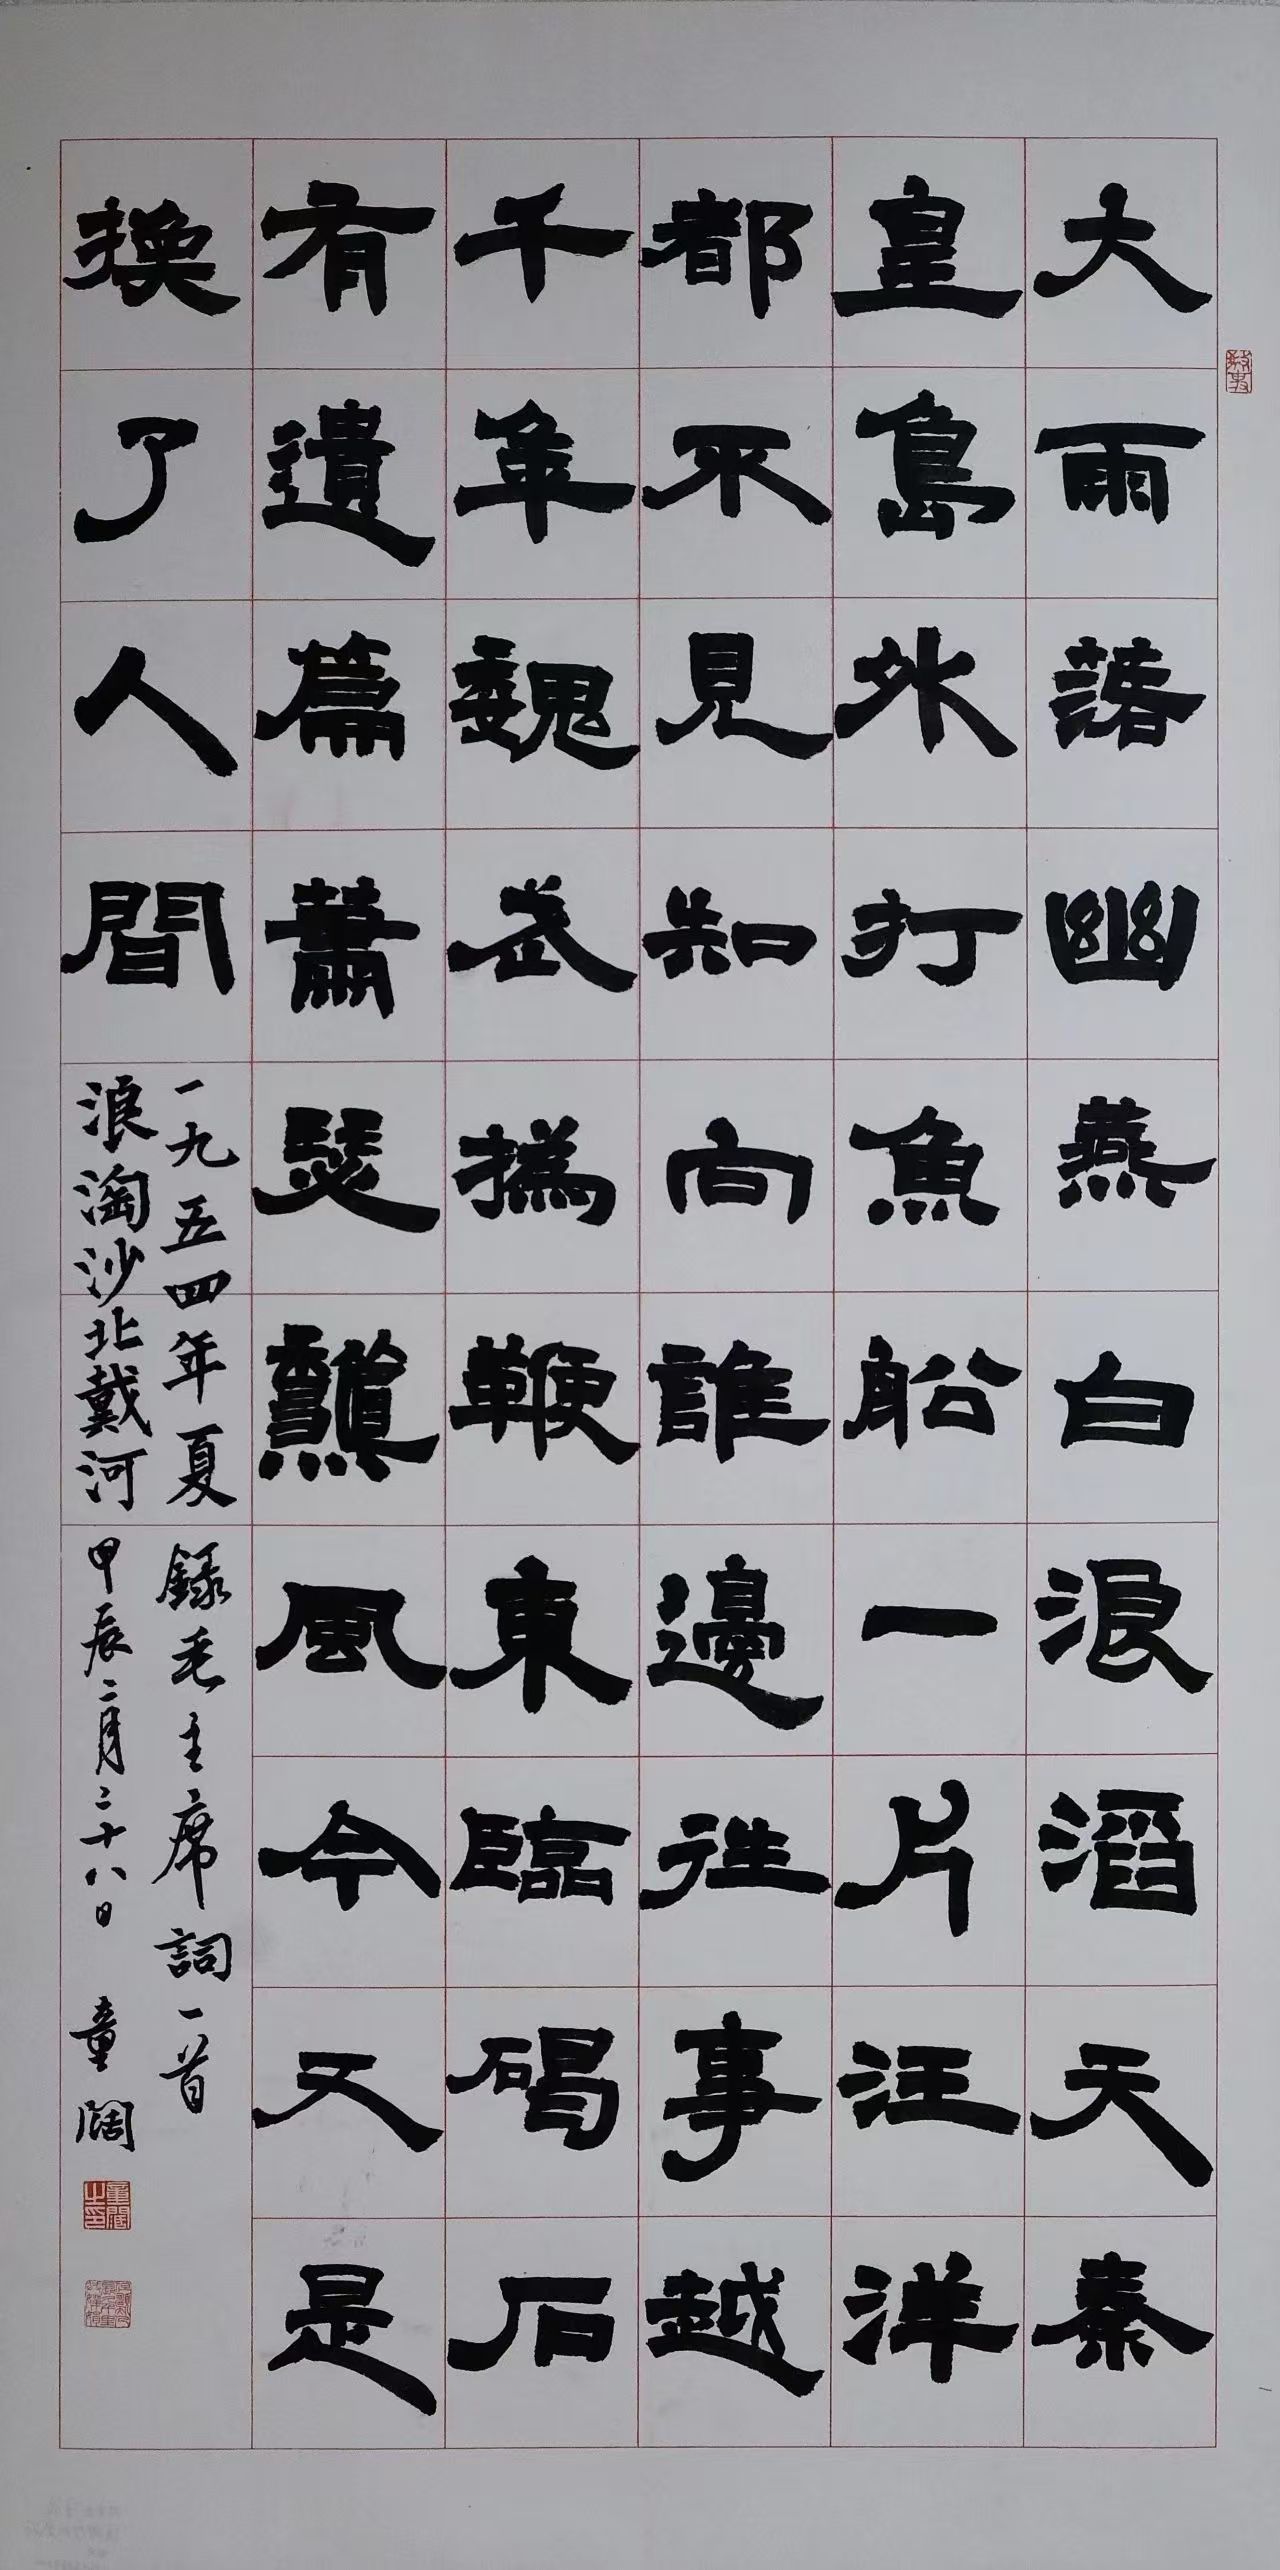 大雨落幽燕白浪滔天秦
皇島外打魚船一片汪洋
都不見知向誰邊往事越
千年魏武撝鞭東臨碣石
有遺篇蕭瑟龝風今又是
換了人間
一九五四年夏
浪淘沙北戴河
錄毛主席詞一首
甲辰二月二十八日 童闊
童闊之印